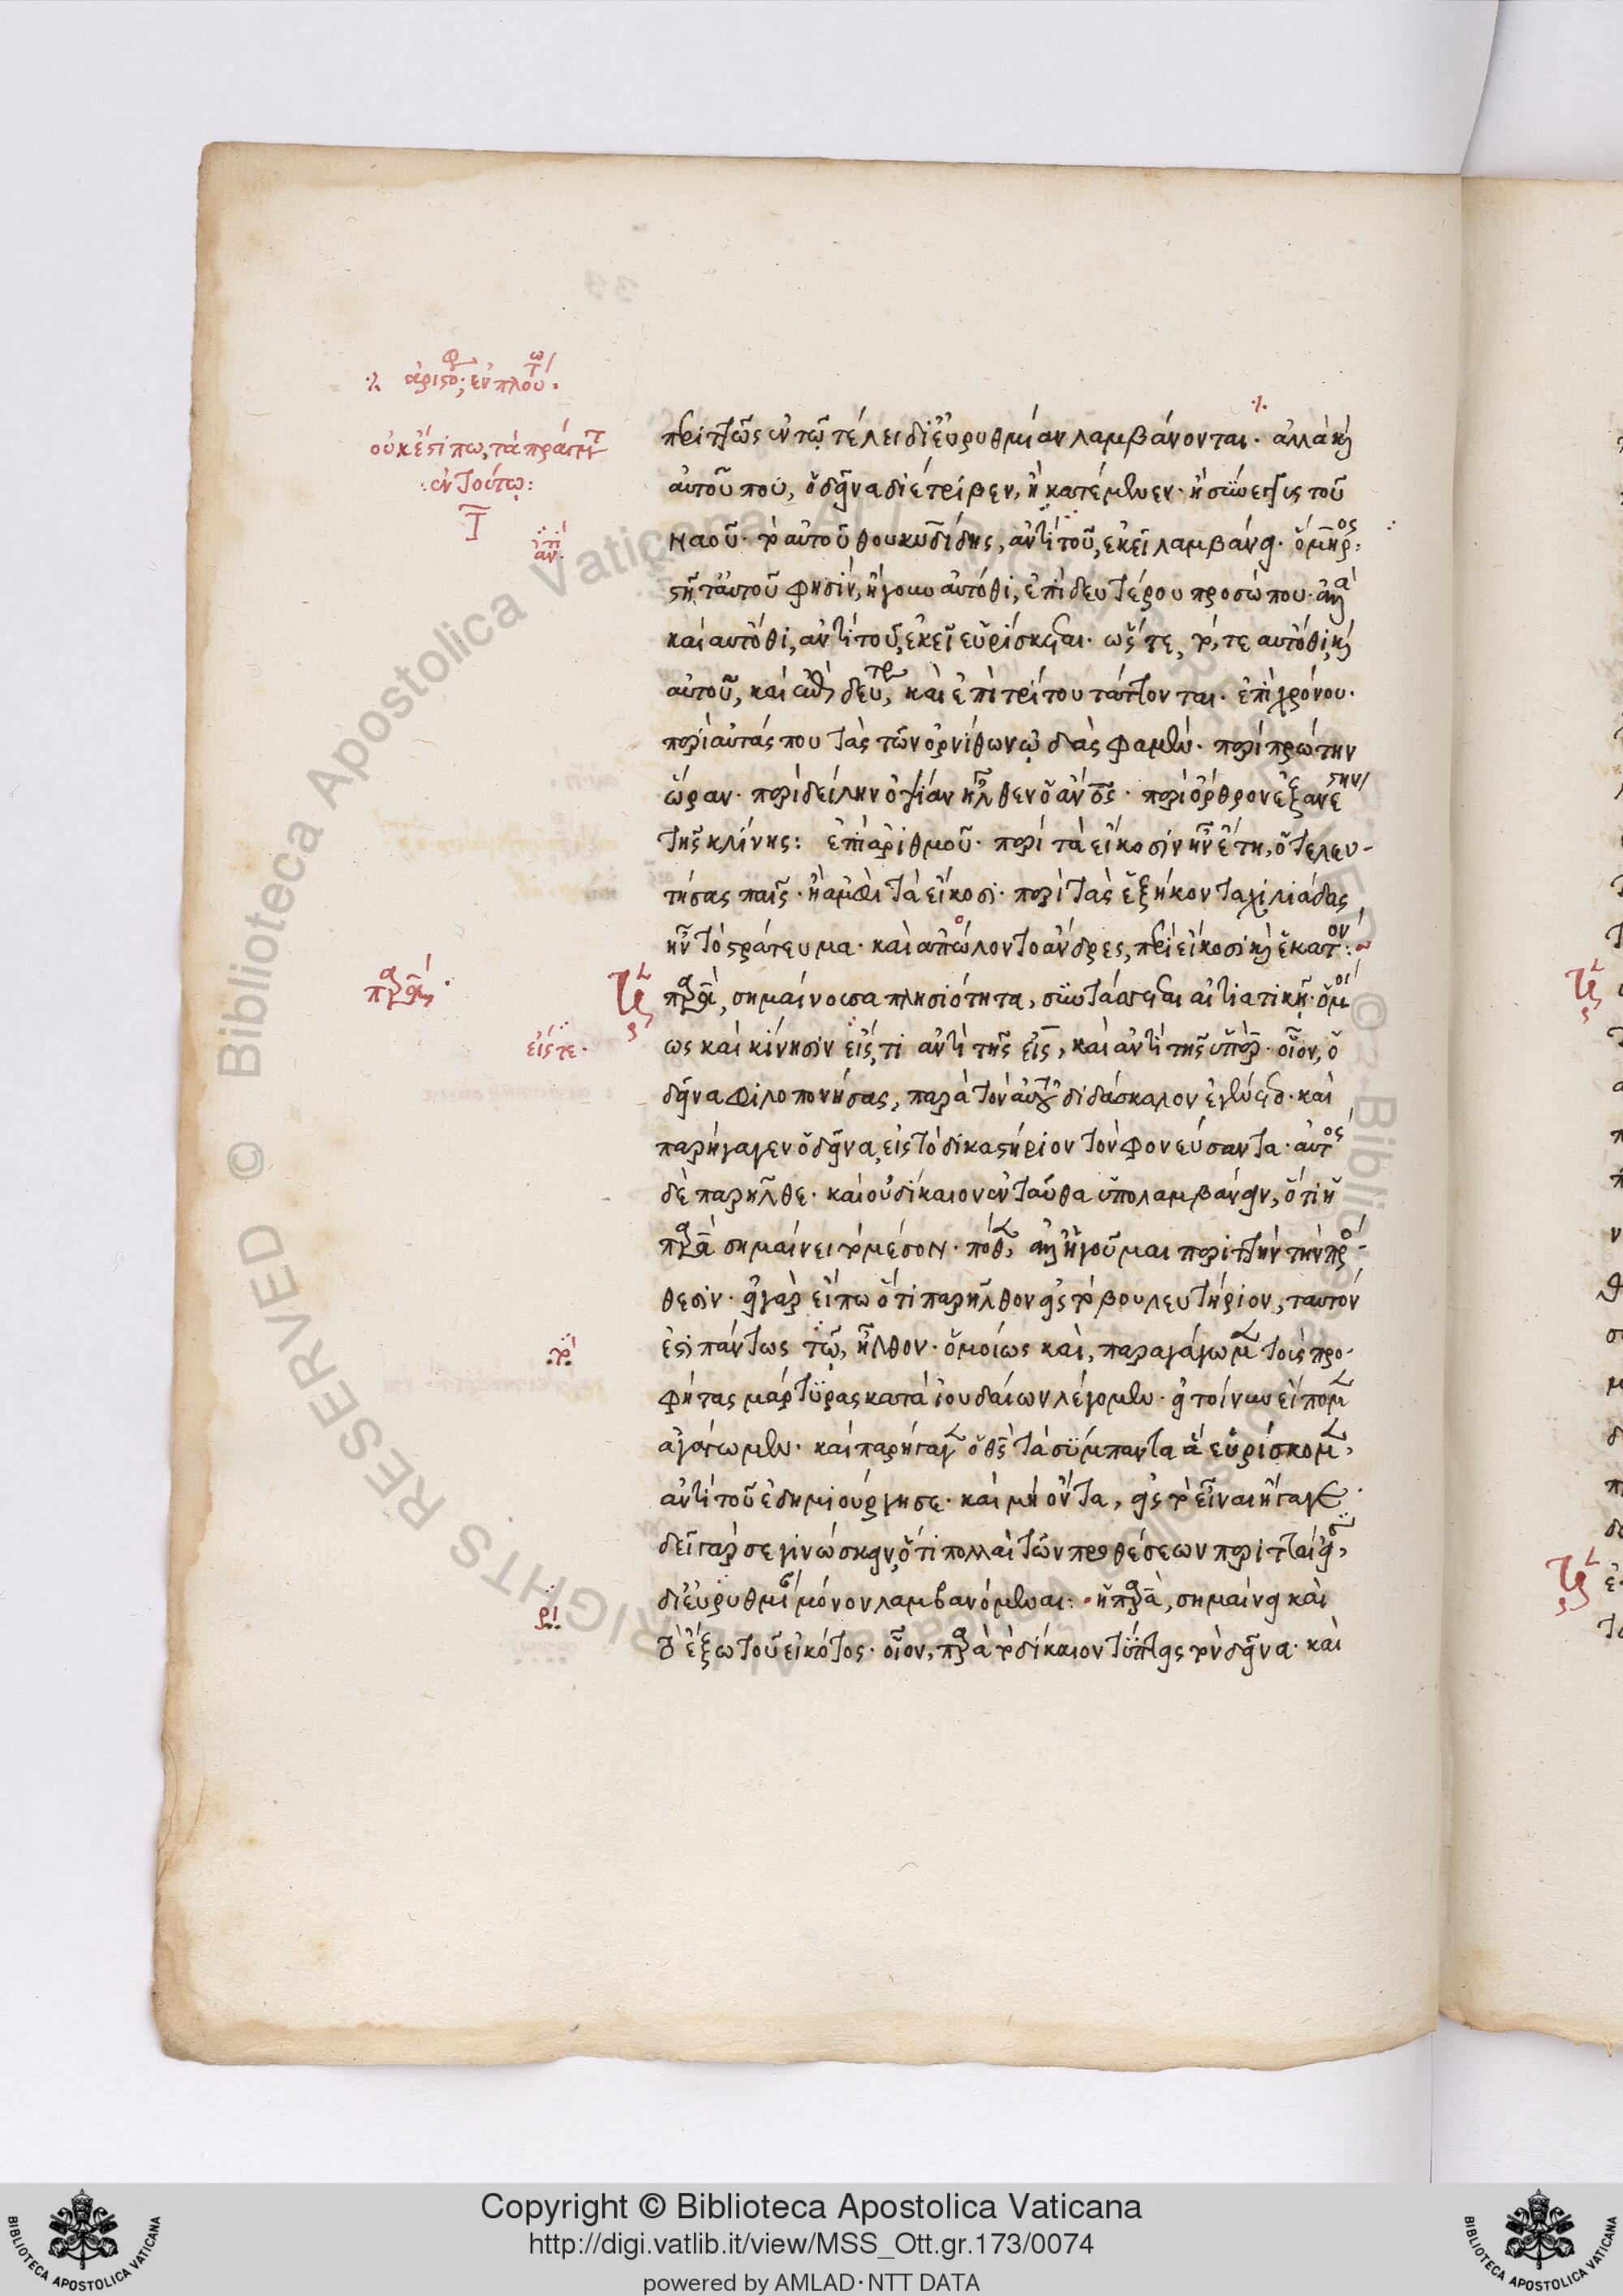 ·/. ἀριστοφ; ἐν πλούτω.
οὐκ ἔστί πω, τὰ πράγματ
ἐν τούτω:
ἀντὶ
παρὰ·
εἴς τε·
τὸ
·/.
περιττῶς ἐν τῷ τέλει δι' εὐρυθμίαν λαμβάνονται· ἀλλὰ καὶ
αὐτοῦ που, ὁ δεῖνα διέτριβεν, ἢ κατέμενεν· ἢ σύνεγγυς τοῦ
ναοῦ· τὸ αὐτοῦ θουκυδίδης, ἀντὶ τοῦ, ἐκεῖ λαμβάνει· ὅμηρος
στῆτ' αὐτοῦ φησίν, ἤγουν αὐτόθι, ἐπὶ δευτέρου προσώπου·
καὶ αὐτόθι, ἀντὶ τοῦ, ἐκεῖ εὑρίσκεται· ὥστε, τό, τε αὐτόθι, καὶ
αὐτοῦ, καὶ ἐπὶ δευτέρου, καὶ ἐπὶ τρίτου τάττονται· ἐπὶ χρόνου·
περὶ αὐτάς που τὰς τῶν ὀρνίθων ᾠδὰς φαμέν· περὶ πρώτην
ὥραν· περὶ δείλην ὀψίαν ἦλθεν ὁ ἄνος· περὶ ὄρθρον ἐξανέστην
τῆς κλίνης: ἐπὶ ἀριθμοῦ· περὶ τὰ εἴκοσιν ἦν ἔτη, ὁ τελευ-
τήσας παῖς· ἢ ἀμφὶ τὰ εἴκοσι· περὶ τὰς ἑξήκοντα χιλιάδας
ἦν τὸ στράτευμα· καὶ ἀπώλοντο ἄνδρες, περὶ εἴκοσι καὶ ἑκατόν:
παρὰ, σημαίνουσα πλησιότητα, συντάσσεται αἰτιατικῇ· ὁμοί
ως καὶ κίνησιν εἴς, τι ἀντὶ τῆς εἰς, καὶ ἀντὶ τῆς ὑπὲρ· οἷον, ὁ
δεῖνα φιλοπονήσας, παρὰ τὸν αὐτοῦ διδάσκαλον ἐγένετο· καὶ
παρήγαγεν ὁ δεῖνα, εἰς τὸ δικαστήριον τὸν φονεύσαντα· αὐτὸς
δὲ παρῆλθε· καὶ οὐ δίκαιον ἐνταῦθα ὑπολαμβάνειν, ὅτι ἡ
παρὰ σημαίνει τὸ μέσον· πόθεν, ἀλλ' ἡγοῦμαι περιττὴν τὴν πρό-
θεσιν· εἰ γὰρ εἴπω ὅτι παρῆλθον εἰς τὸ βουλευτήριον, ταυτόν
ἐστι πάντως τῷ, ἦλθον· ὁμοίως καὶ, παραγάγωμεν τοὺς προ-
φήτας μάρτυρας κατὰ ἰουδαίων λέγομεν· εἰ τοίνυν εἴπομεν
ἀγάγωμεν· καὶ παρήγαγεν ὁ θεὸς τὰ σύμπαντα ἃ εὑρίσκομεν,
ἀντὶ τοῦ ἐδημιούργησε· καὶ μὴ ὄντα, εἰς τὸ εἶναι ἤγαγε·
δεῖ γάρ σε γινώσκειν, ὅτι πολλαὶ τῶν προθέσεων περιτταί εἰσι,
δι' εὐρυθμίαν μόνον λαμβανόμεναι: ἡ παρὰ, σημαίνει καὶ
τὸ ἔξω τοῦ εἰκότος· οἷον, παρὰ τὸ δίκαιον τύπτεις τὸν δεῖνα· καὶ
© Biblioteca Apostolica Vaticana ALL RIGHTS RESERVED
Copyright © Biblioteca Apostolica Vaticana
http://digi.vatlib.it/view/MSS_Ott.gr.173/0074
powered by AMLAD·NTT DATA
BIBLIOTECA APOSTOLICA VATICANA
BIBLIOTECA APOSTOLICA VATICANA